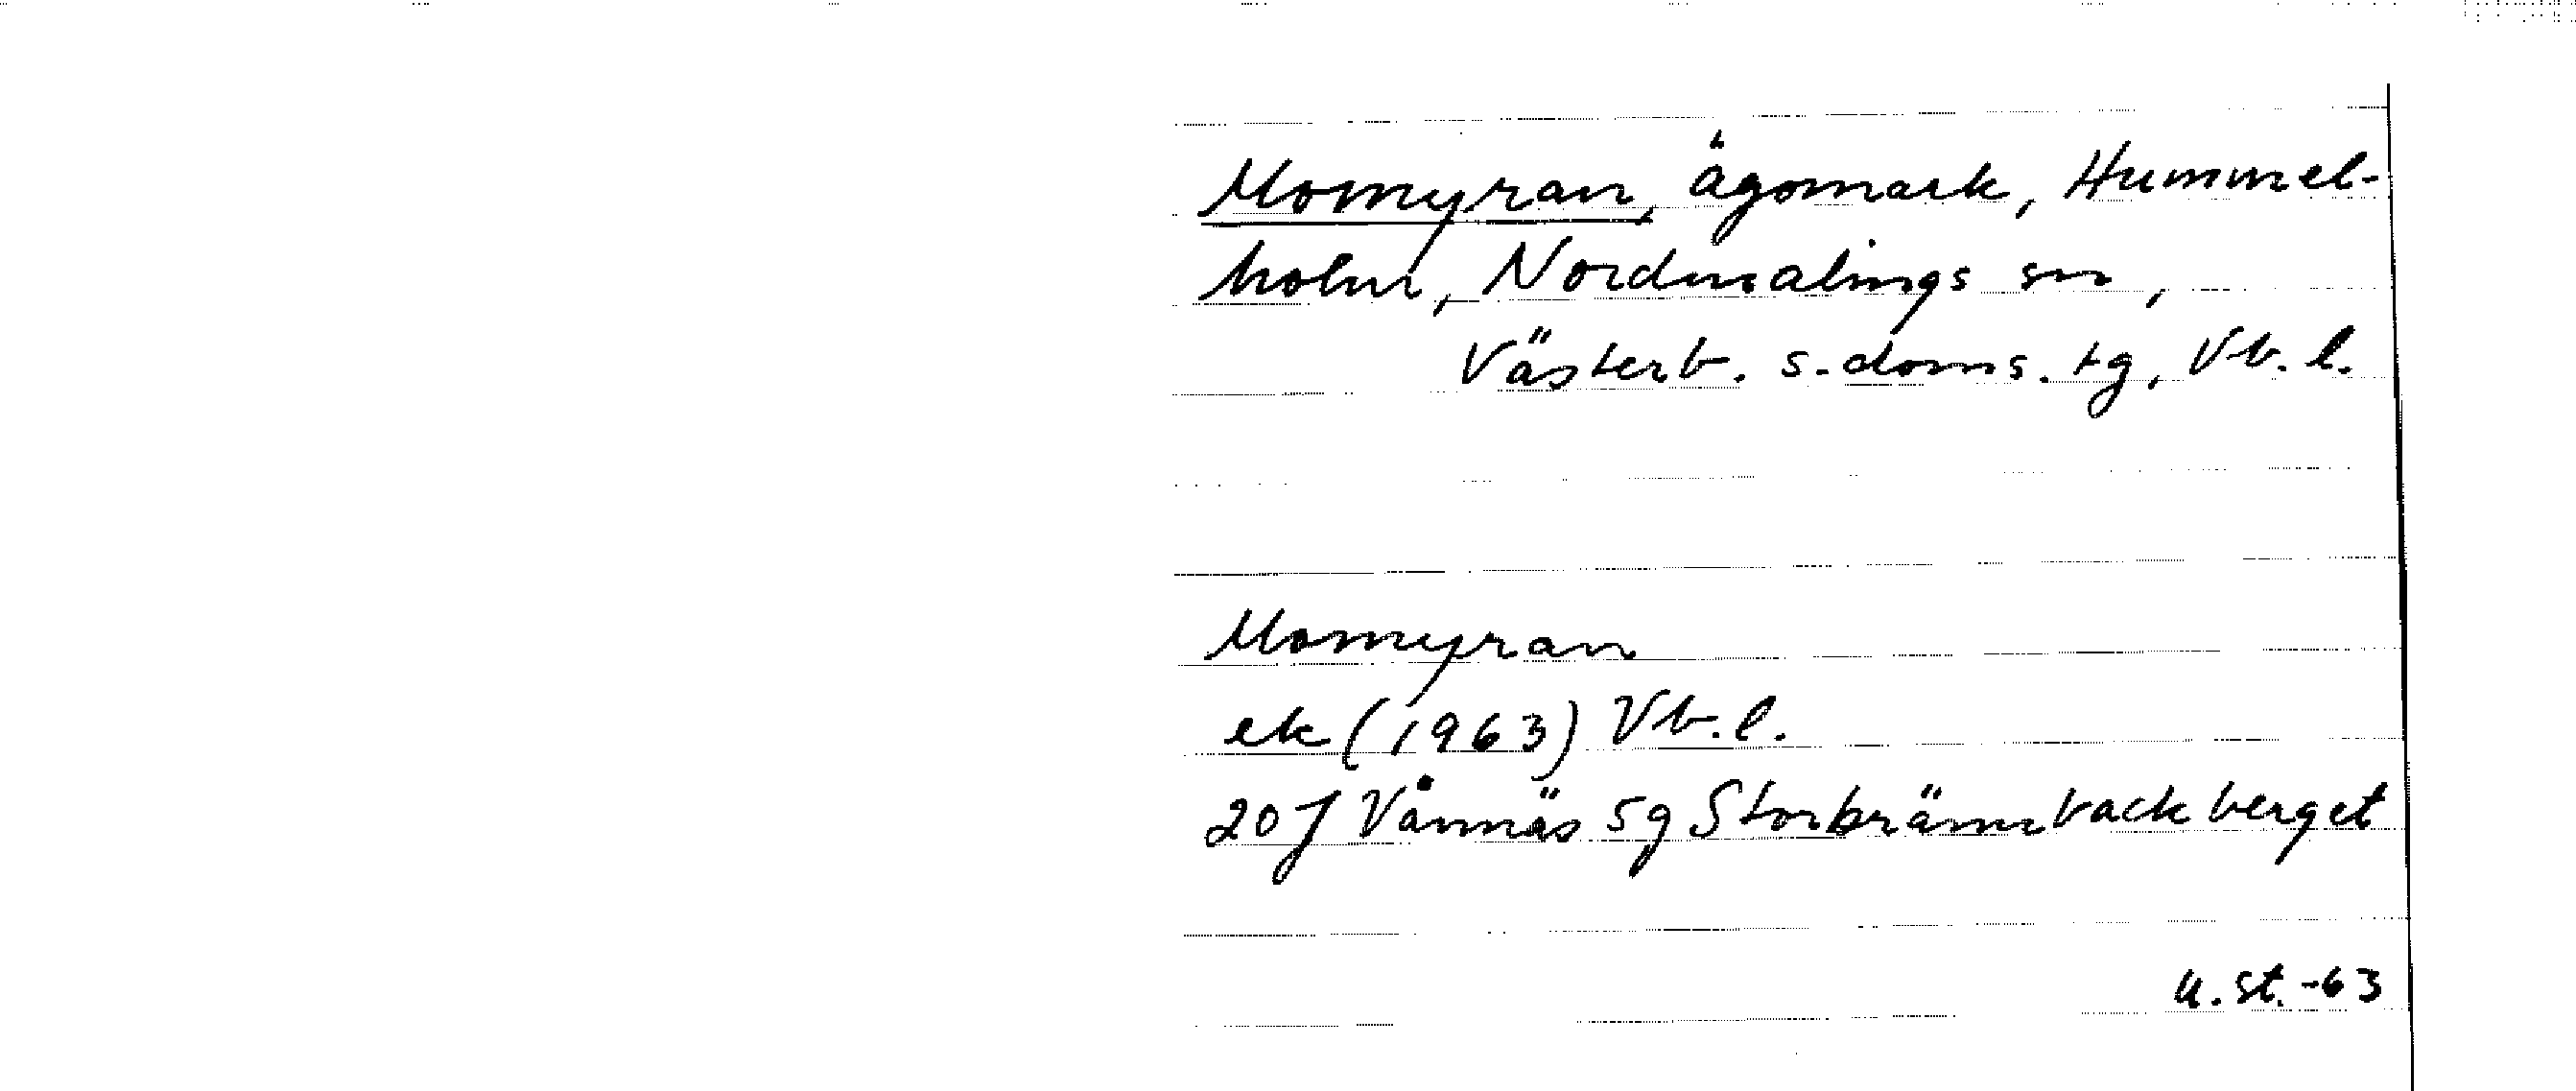 Momyran, ägomark, Hummel-
holm, Nordmalings sn,
Västerb. s. doms. tg, Vb. l.
Momyran
ek (1963) Vb. l.
20 J Vännäs 5g Storbrännbackberget
u. st. -63